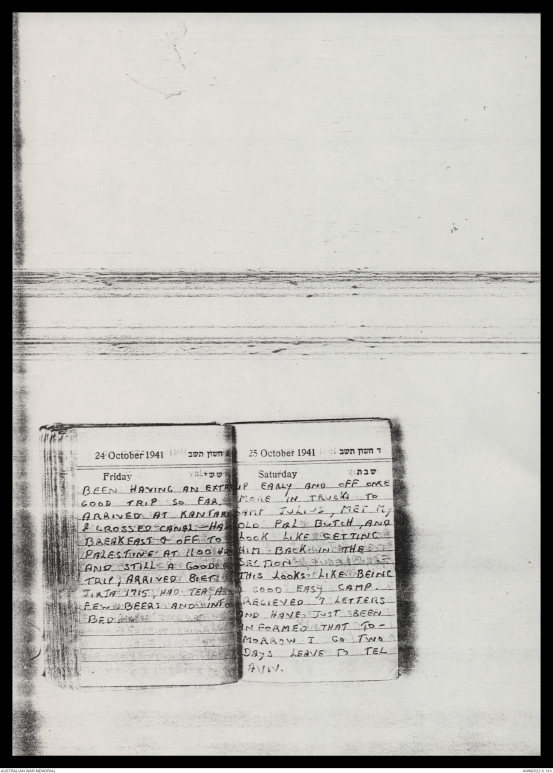 24 October 1941 חשון תשב
Friday ששי
BEEN HAVING AN EXTRA
GOOD TRIP SO FAR,
ARRIVED AT KANTAR
& CROSSED CANAL — HAD
BREAKFAST & OFF TO
PALESTINE AT 1100 H
AND STILL A GOOD
TRIP, ARRIVED BIET
JIRJA 1915, HAD TEA, A
FEW BEERS AND INTO
BED
25 October 1941 ד חשון תשב
Saturday שבת
UP EARLY AND OFF ONCE
MORE IN TRUCKS TO
CAMP JULIUS, MET MY
OLD PAL BUTCH, AND
LOOK LIKE GETTING
HIM BACK IN THE
SECTION
THIS LOOKS LIKE BEING
A GOOD EASY CAMP.
RECIEVED 7 LETTERS
AND HAVE JUST BEEN
INFORMED THAT TO-
MORROW I GO TWO
DAYS LEAVE TO TEL
AVIV.
AUSTRALIAN WAR MEMORIAL